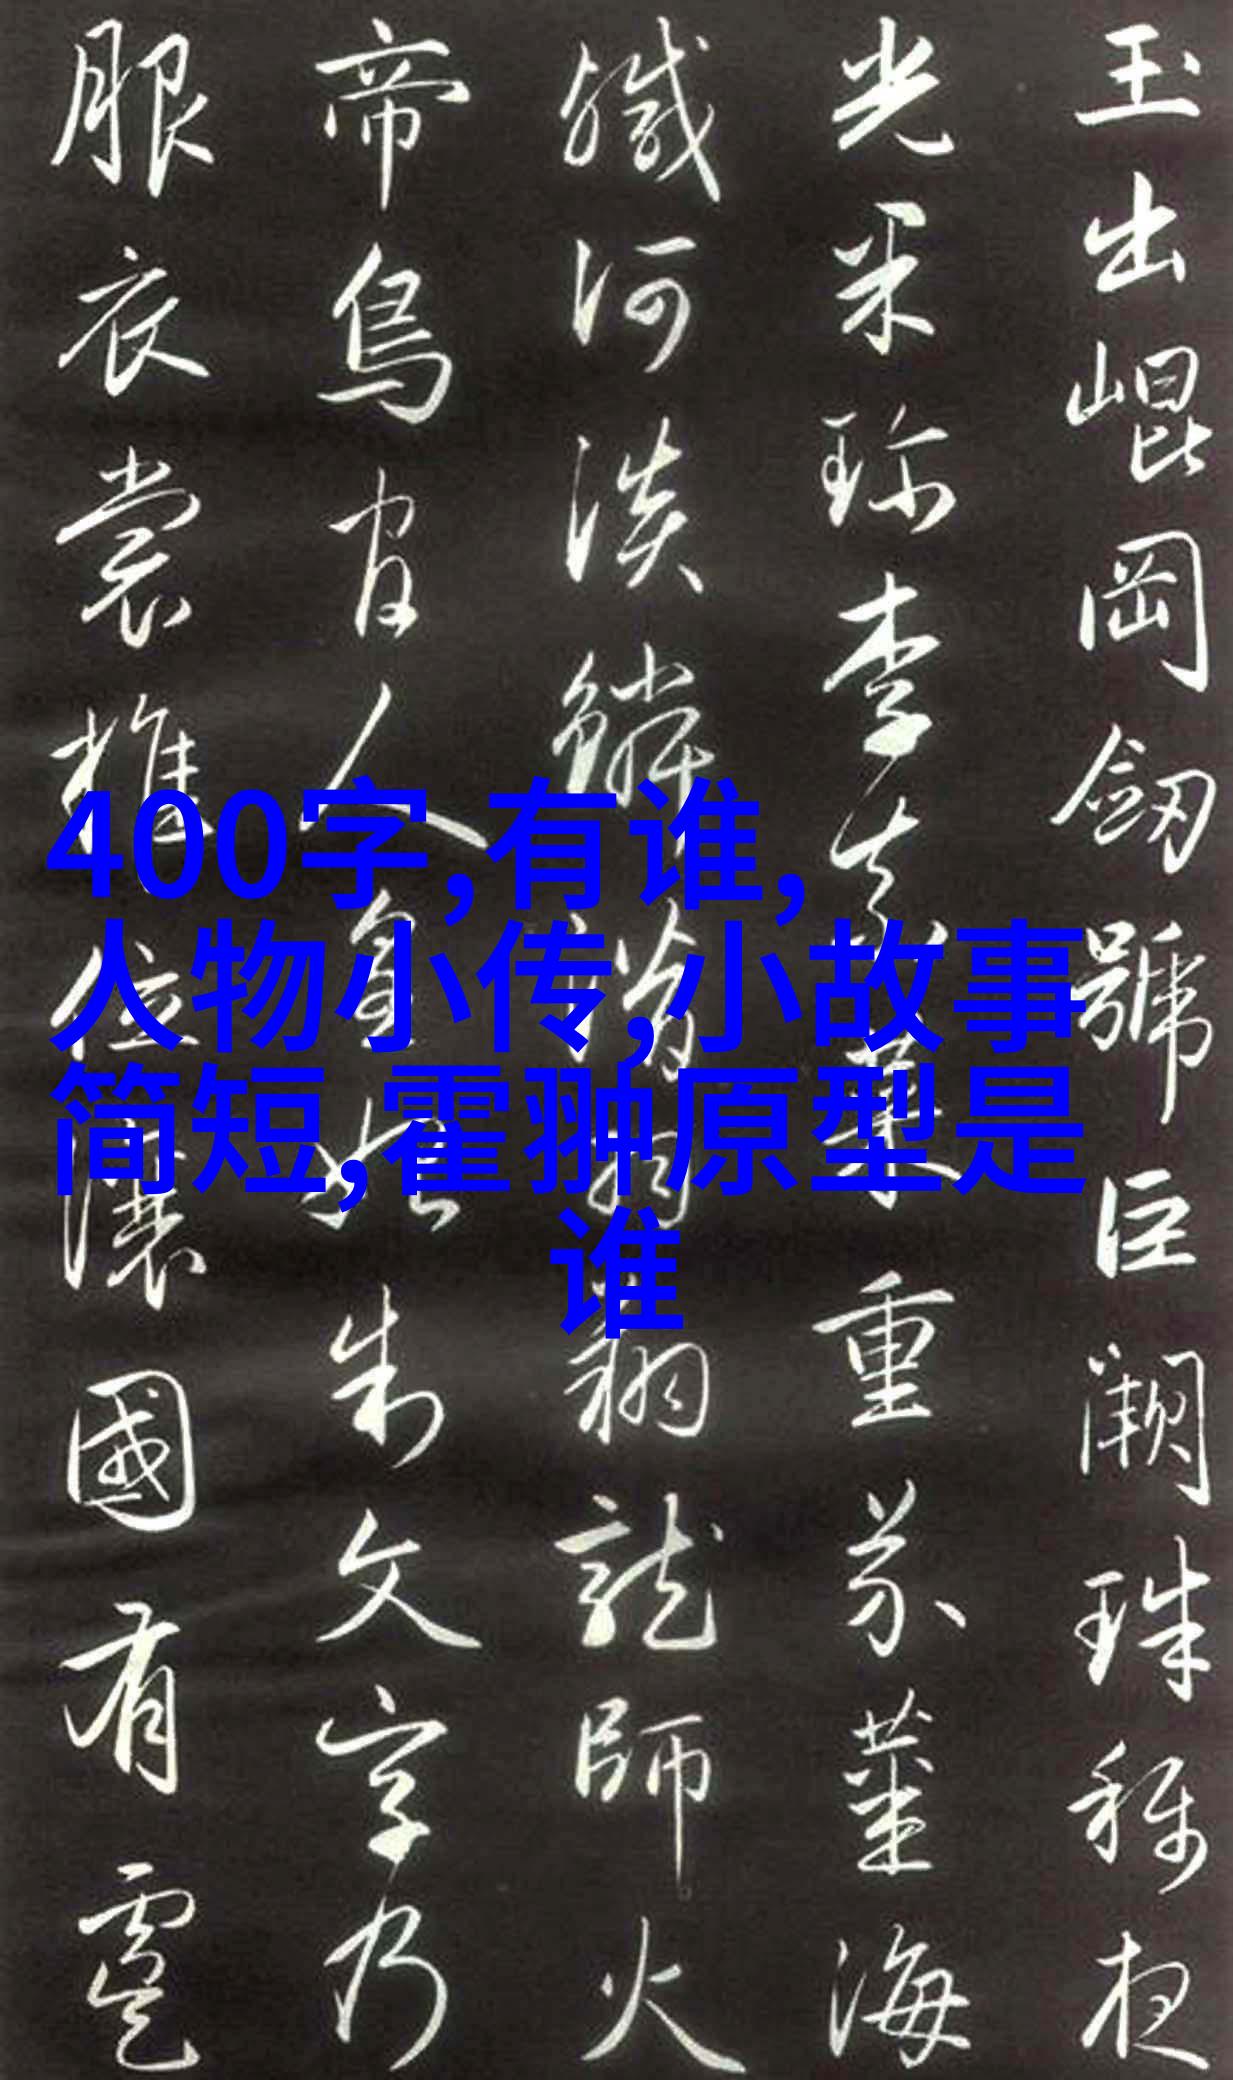 玉出崐岡劒號巨闕珠稱夜
光果珍李柰菜重芥薑海
鹹河淡鱗潛羽翔龍師火
帝鳥官人皇始制文字乃
服衣裳推位讓國有虞
400字,有谁,
人物小传,小故事
简短,霍翀原型是
谁